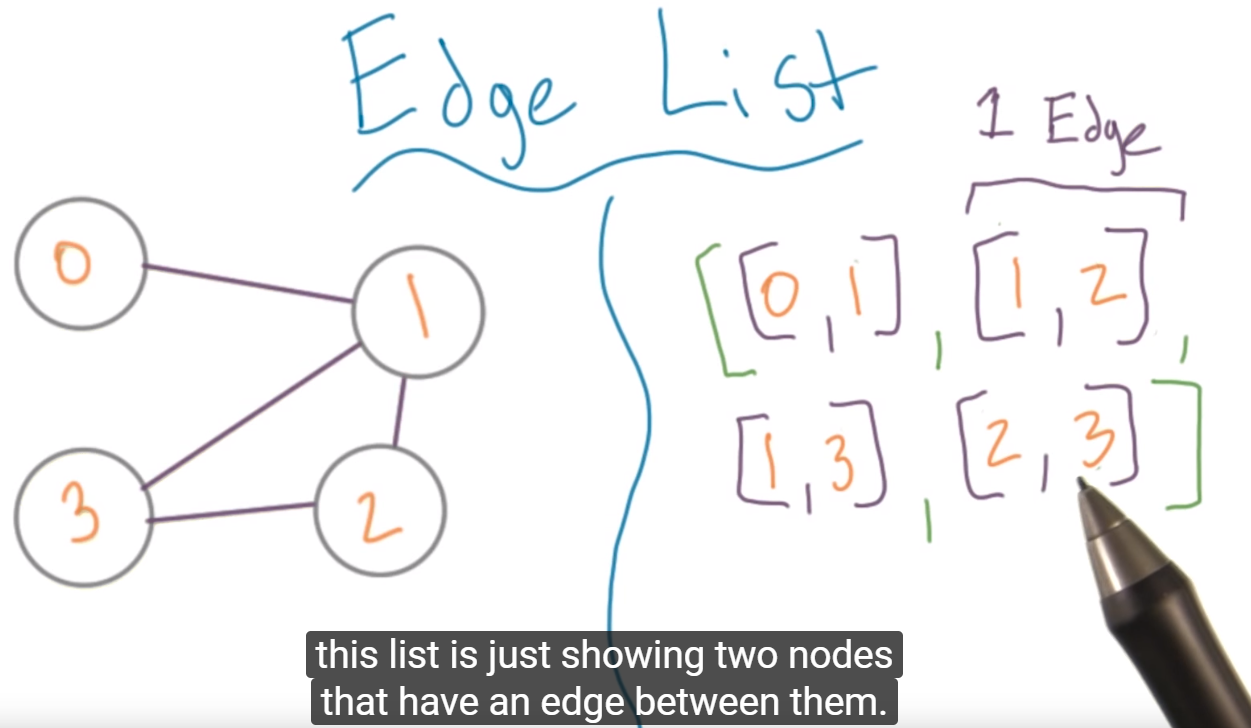 Edge List
1 Edge
0
1
3
2
[[0,1], [1,2],
[1,3], [2,3]]
this list is just showing two nodes
that have an edge between them.